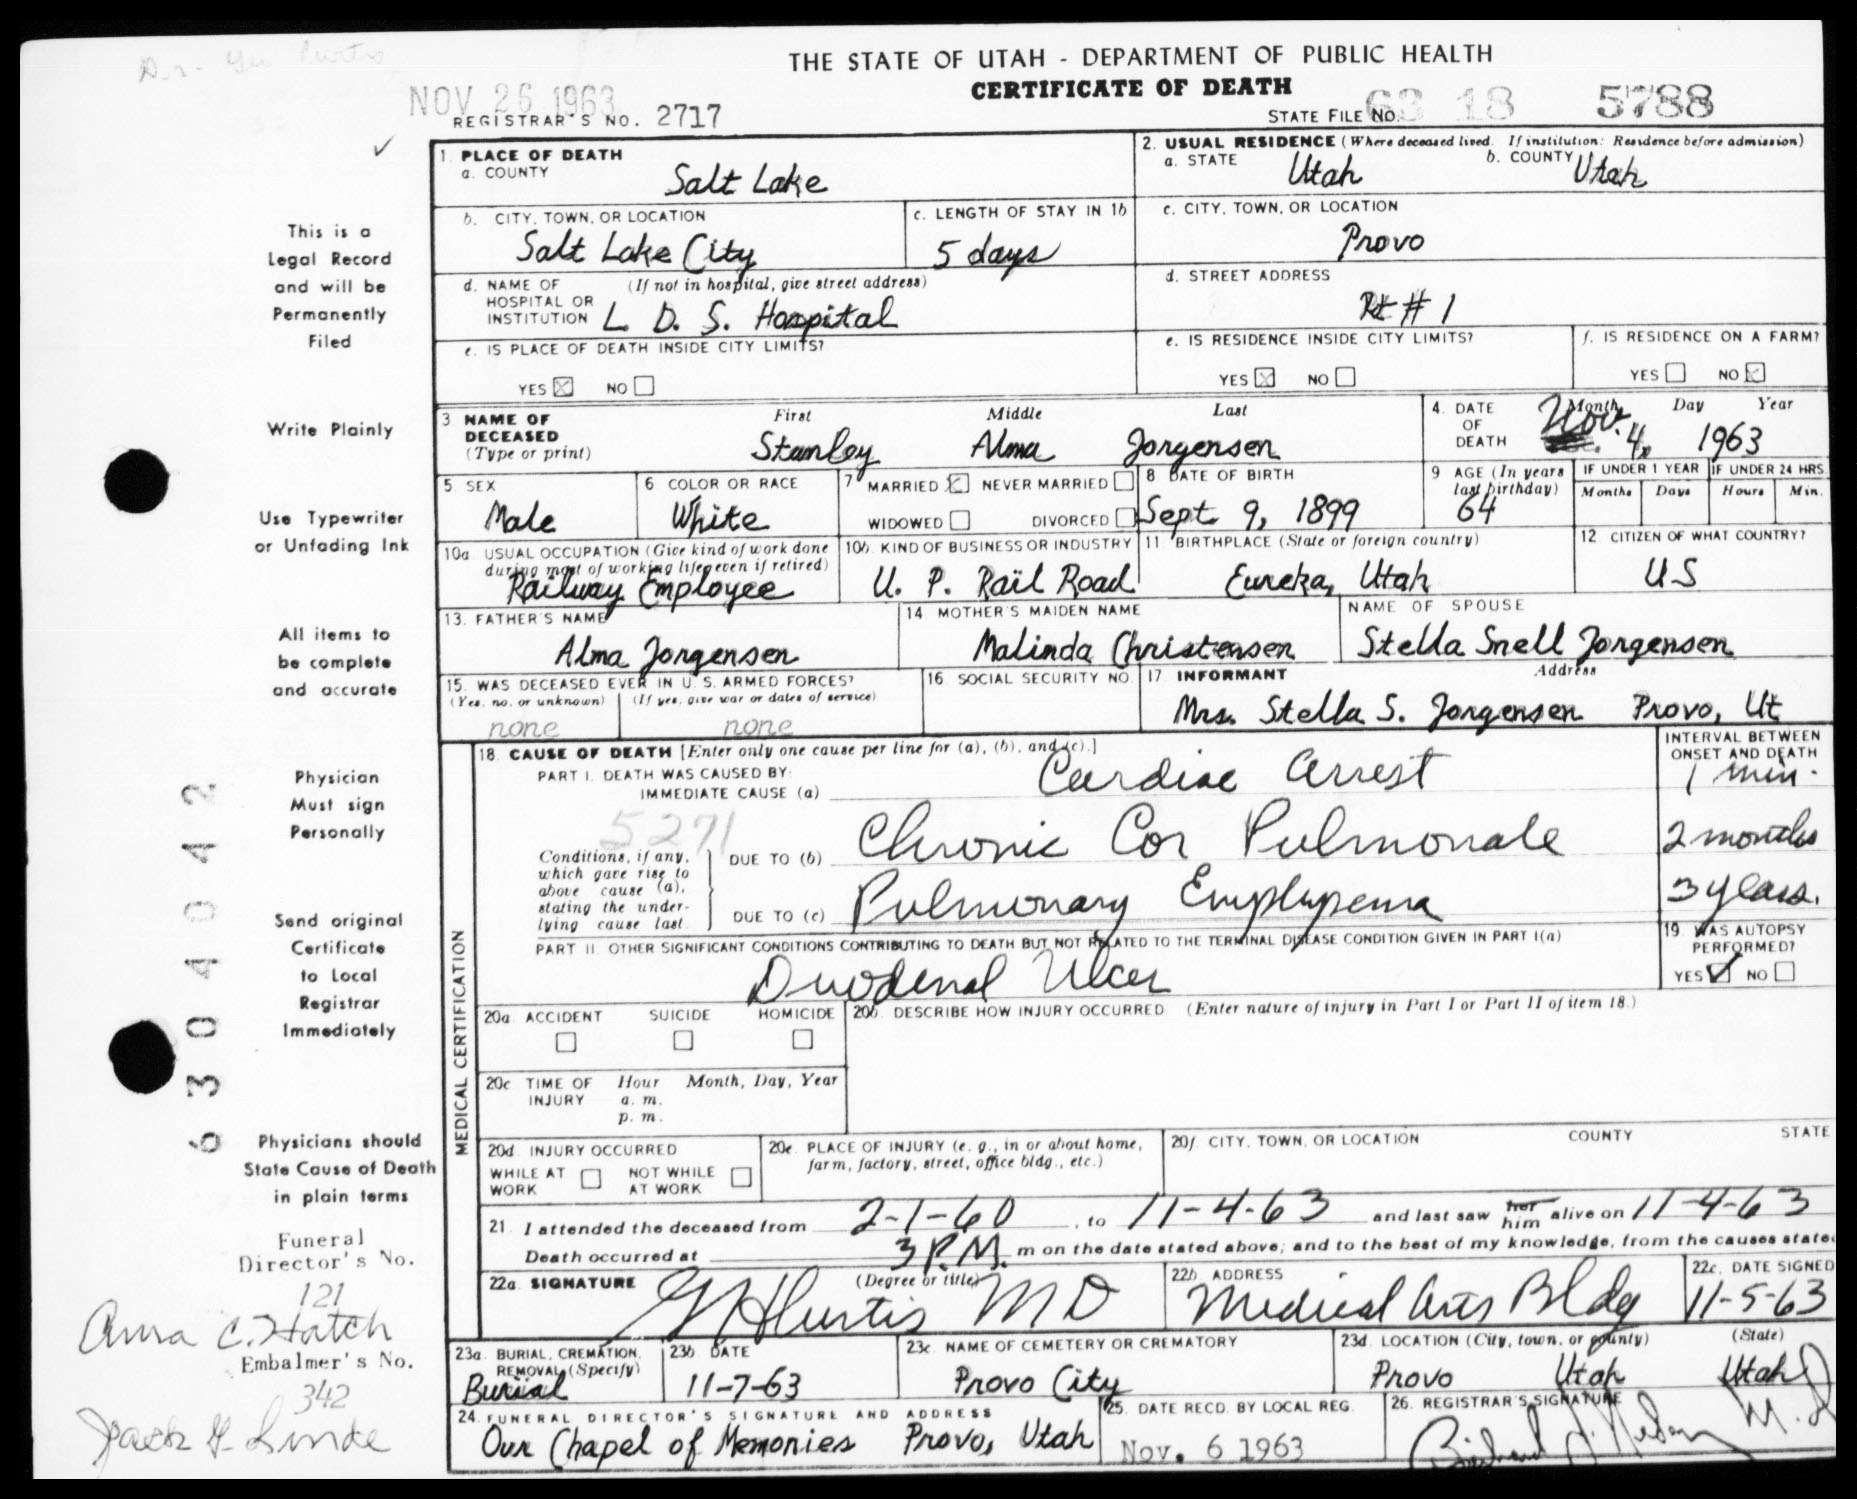 THE STATE OF UTAH - DEPARTMENT OF PUBLIC HEALTH
CERTIFICATE OF DEATH
NOV 26 1963
REGISTRAR'S NO. 2717
STATE FILE NO. 63 18 5788
This is a
Legal Record
and will be
Permanently
Filed
Write Plainly
Use Typewriter
or Unfading Ink
All items to
be complete
and accurate
Physician
Must sign
Personally
Send original
Certificate
to Local
Registrar
Immediately
Physicians should
State Cause of Death
in plain terms
Funeral
Director's No.
121
Anna C. Hatch
Embalmer's No.
342
6304042
1. PLACE OF DEATH
a. COUNTY
Salt Lake
2. USUAL RESIDENCE (Where deceased lived. If institution: Residence before admission)
a. STATE Utah b. COUNTY Utah
b. CITY, TOWN, OR LOCATION
Salt Lake City
c. LENGTH OF STAY IN 1b
5 days
c. CITY, TOWN, OR LOCATION
Provo
d. NAME OF (If not in hospital, give street address)
HOSPITAL OR
INSTITUTION L. D. S. Hospital
d. STREET ADDRESS
Rt # 1
e. IS PLACE OF DEATH INSIDE CITY LIMITS?
YES NO
e. IS RESIDENCE INSIDE CITY LIMITS?
YES NO
f. IS RESIDENCE ON A FARM?
YES NO
3 NAME OF DECEASED
(Type or print)
First Middle Last
Stanley Alma Jorgensen
4. DATE OF DEATH
Month Day Year
Nov. 4, 1963
5. SEX
Male
6 COLOR OR RACE
White
7 MARRIED NEVER MARRIED
WIDOWED DIVORCED
8 DATE OF BIRTH
Sept. 9, 1899
9 AGE (In years
last birthday)
64
IF UNDER 1 YEAR
Months Days
IF UNDER 24 HRS.
Hours Min.
10a USUAL OCCUPATION (Give kind of work done
during most of working life, even if retired)
Railway Employee
10b. KIND OF BUSINESS OR INDUSTRY
U. P. Rail Road
11 BIRTHPLACE (State or foreign country)
Eureka, Utah
12 CITIZEN OF WHAT COUNTRY?
US
13. FATHER'S NAME
Alma Jorgensen
14 MOTHER'S MAIDEN NAME
Malinda Christensen
NAME OF SPOUSE
Stella Snell Jorgensen
15. WAS DECEASED EVER IN U. S. ARMED FORCES?
(Yes, no, or unknown) (If yes, give war or dates of service)
none none
16 SOCIAL SECURITY NO.
17 INFORMANT Address
Mrs. Stella S. Jorgensen Provo, Ut
18. CAUSE OF DEATH [Enter only one cause per line for (a), (b), and (c).]
INTERVAL BETWEEN
ONSET AND DEATH
PART I. DEATH WAS CAUSED BY:
IMMEDIATE CAUSE (a) Cardiac Arrest 1 min.
5271
Conditions, if any,
which gave rise to
above cause (a),
stating the under-
lying cause last.
DUE TO (b) Chronic Cor Pulmonale 2 months
DUE TO (c) Pulmonary Emphysema 3 years.
PART II. OTHER SIGNIFICANT CONDITIONS CONTRIBUTING TO DEATH BUT NOT RELATED TO THE TERMINAL DISEASE CONDITION GIVEN IN PART I(a)
Duodenal Ulcer
19. WAS AUTOPSY
PERFORMED?
YES NO
MEDICAL CERTIFICATION
20a ACCIDENT SUICIDE HOMICIDE
20b. DESCRIBE HOW INJURY OCCURRED (Enter nature of injury in Part I or Part II of item 18.)
20c TIME OF INJURY Hour Month, Day, Year
a. m.
p. m.
20d INJURY OCCURRED
WHILE AT WORK NOT WHILE AT WORK
20e. PLACE OF INJURY (e. g., in or about home,
farm, factory, street, office bldg., etc.)
20f. CITY, TOWN, OR LOCATION COUNTY STATE
21. I attended the deceased from 2-1-60, to 11-4-63 and last saw her him alive on 11-4-63
Death occurred at 3 P.M. m on the date stated above; and to the best of my knowledge, from the causes stated
22a. SIGNATURE (Degree or title)
MD
22b ADDRESS
Medical Arts Bldg
22c. DATE SIGNED
11-5-63
23a. BURIAL, CREMATION,
REMOVAL (Specify)
Burial
23b DATE
11-7-63
23c. NAME OF CEMETERY OR CREMATORY
Provo City
23d LOCATION (City, town, or county) (State)
Provo Utah Utah
24. FUNERAL DIRECTOR'S SIGNATURE AND ADDRESS
Our Chapel of Memories Provo, Utah
25. DATE RECD. BY LOCAL REG.
Nov. 6 1963
26. REGISTRAR'S SIGNATURE